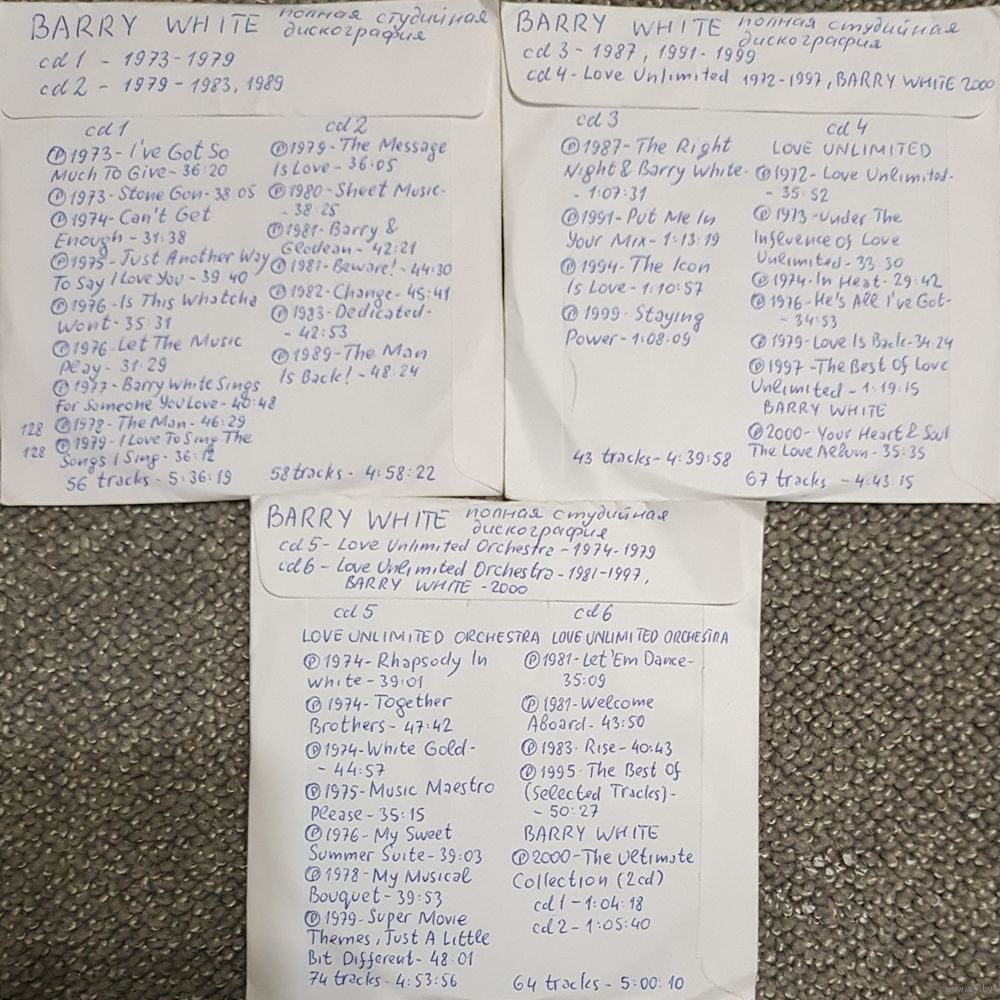 BARRY WHITE полная студийная
дискография
cd 1 - 1973-1979
cd 2 - 1979-1983, 1989
cd 1
Ⓟ 1973- I've Got So
Much To Give - 36:20
Ⓟ 1973- Stone Gon- 38:05
Ⓟ 1974- Can't Get
Enough - 31:38
Ⓟ 1975- Just Another Way
To Say I Love You - 39:40
Ⓟ 1976- Is This Whatcha
Wont- 35:31
Ⓟ 1976- Let The Music
Play- 31:29
Ⓟ 1977- Barry White Sings
For Someone You Love- 40:48
128 Ⓟ 1978- The Man- 46:29
128 Ⓟ 1979- I Love To Sing The
Songs I Sing- 36:12
56 tracks - 5:36:19
cd 2
Ⓟ 1979- The Message
Is Love- 36:05
Ⓟ 1980- Sheet Music-
- 38:25
Ⓟ 1981- Barry &
Glodean- 42:21
Ⓟ 1981- Beware! - 44:30
Ⓟ 1982- Change- 45:41
Ⓟ 1983- Dedicated-
- 42:53
Ⓟ 1989- The Man
Is Back! - 48:24
58 tracks - 4:58:22
BARRY WHITE полная студийная
дискография
cd 3 - 1987, 1991-1999
cd 4- Love Unlimited 1972-1997, BARRY WHITE 2000
cd 3
Ⓟ 1987- The Right
Night & Barry White-
- 1:07:31
Ⓟ 1991- Put Me In
Your Mix- 1:13:19
Ⓟ 1994- The Icon
Is Love- 1:10:57
Ⓟ 1999- Staying
Power- 1:08:09
43 tracks- 4:39:58
cd 4
LOVE UNLIMITED
Ⓟ 1972- Love Unlimited-
- 35:52
Ⓟ 1973-Under The
Influence of Love
Unlimited- 33:30
Ⓟ 1974- In Heat- 29:42
Ⓟ 1976- He's All I've Got-
- 34:53
Ⓟ 1979- Love Is Back- 34:24
Ⓟ 1997 -The Best Of Love
Unlimited - 1:19:15
BARRY WHITE
Ⓟ 2000- Your Heart & Soul
The Love Album- 35:35
67 tracks - 4:43:15
BARRY WHITE полная студийная
дискография
cd 5- Love Unlimited Orchestra - 1974-1979
cd 6- Love Unlimited Orchestra- 1981-1997,
BARRY WHITE -2000
cd 5
LOVE UNLIMITED ORCHESTRA
Ⓟ 1974- Rhapsody In
White - 39:01
Ⓟ 1974- Together
Brothers- 47:42
Ⓟ 1974- White Gold-
- 44:57
Ⓟ 1975- Music Maestro
Please- 35:15
Ⓟ 1976- My Sweet
Summer Suite- 39:03
Ⓟ 1978- My Musical
Bouquet- 39:53
Ⓟ 1979- Super Movie
Themes, Just A Little
Bit Different- 48:01
74 tracks- 4:53:56
cd 6
LOVE UNLIMITED ORCHESTRA
Ⓟ 1981- Let'Em Dance-
35:09
Ⓟ 1981- Welcome
Aboard- 43:50
Ⓟ 1983- Rise- 40:43
Ⓟ 1995- The Best Of
(Selected Tracks)-
- 50:27
BARRY WHITE
Ⓟ 2000- The Ultimate
Collection (2cd)
cd 1 - 1:04:18
cd 2- 1:05:40
64 tracks - 5:00:10
www.ay.by